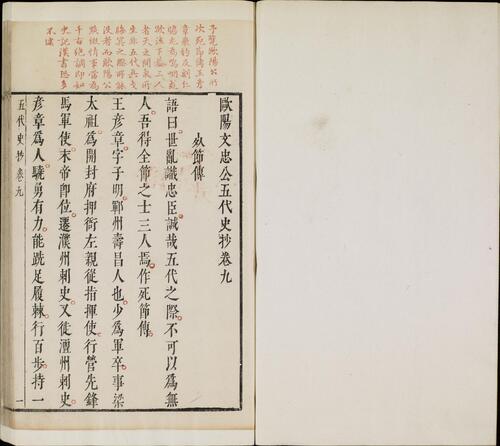 歐陽文忠公五代史抄卷九
死節傳
語曰世亂識忠臣誠哉五代之際不可以爲無
人吾得全節之士三人焉作死節傳
王彥章字子明鄆州壽昌人也少爲軍卒事梁
太祖爲開封府押衙左親從指揮使行營先鋒
馬軍使末帝即位遷濮州刺史又徙澶州刺史
彥章爲人驍勇有力能跣足履棘行百步持一
予覽歐陽公所
次死節傳王彥
章裴約及劉仁
贍尤爲嗚咽欷
歔泣下蓋三人
者天之間氣所
生非五代兵戈
晦冥之際所能
沒者而歐陽公
點綴情事當爲
千古絕調即如
史記漢書恐多
不逮
五代史抄卷九
一